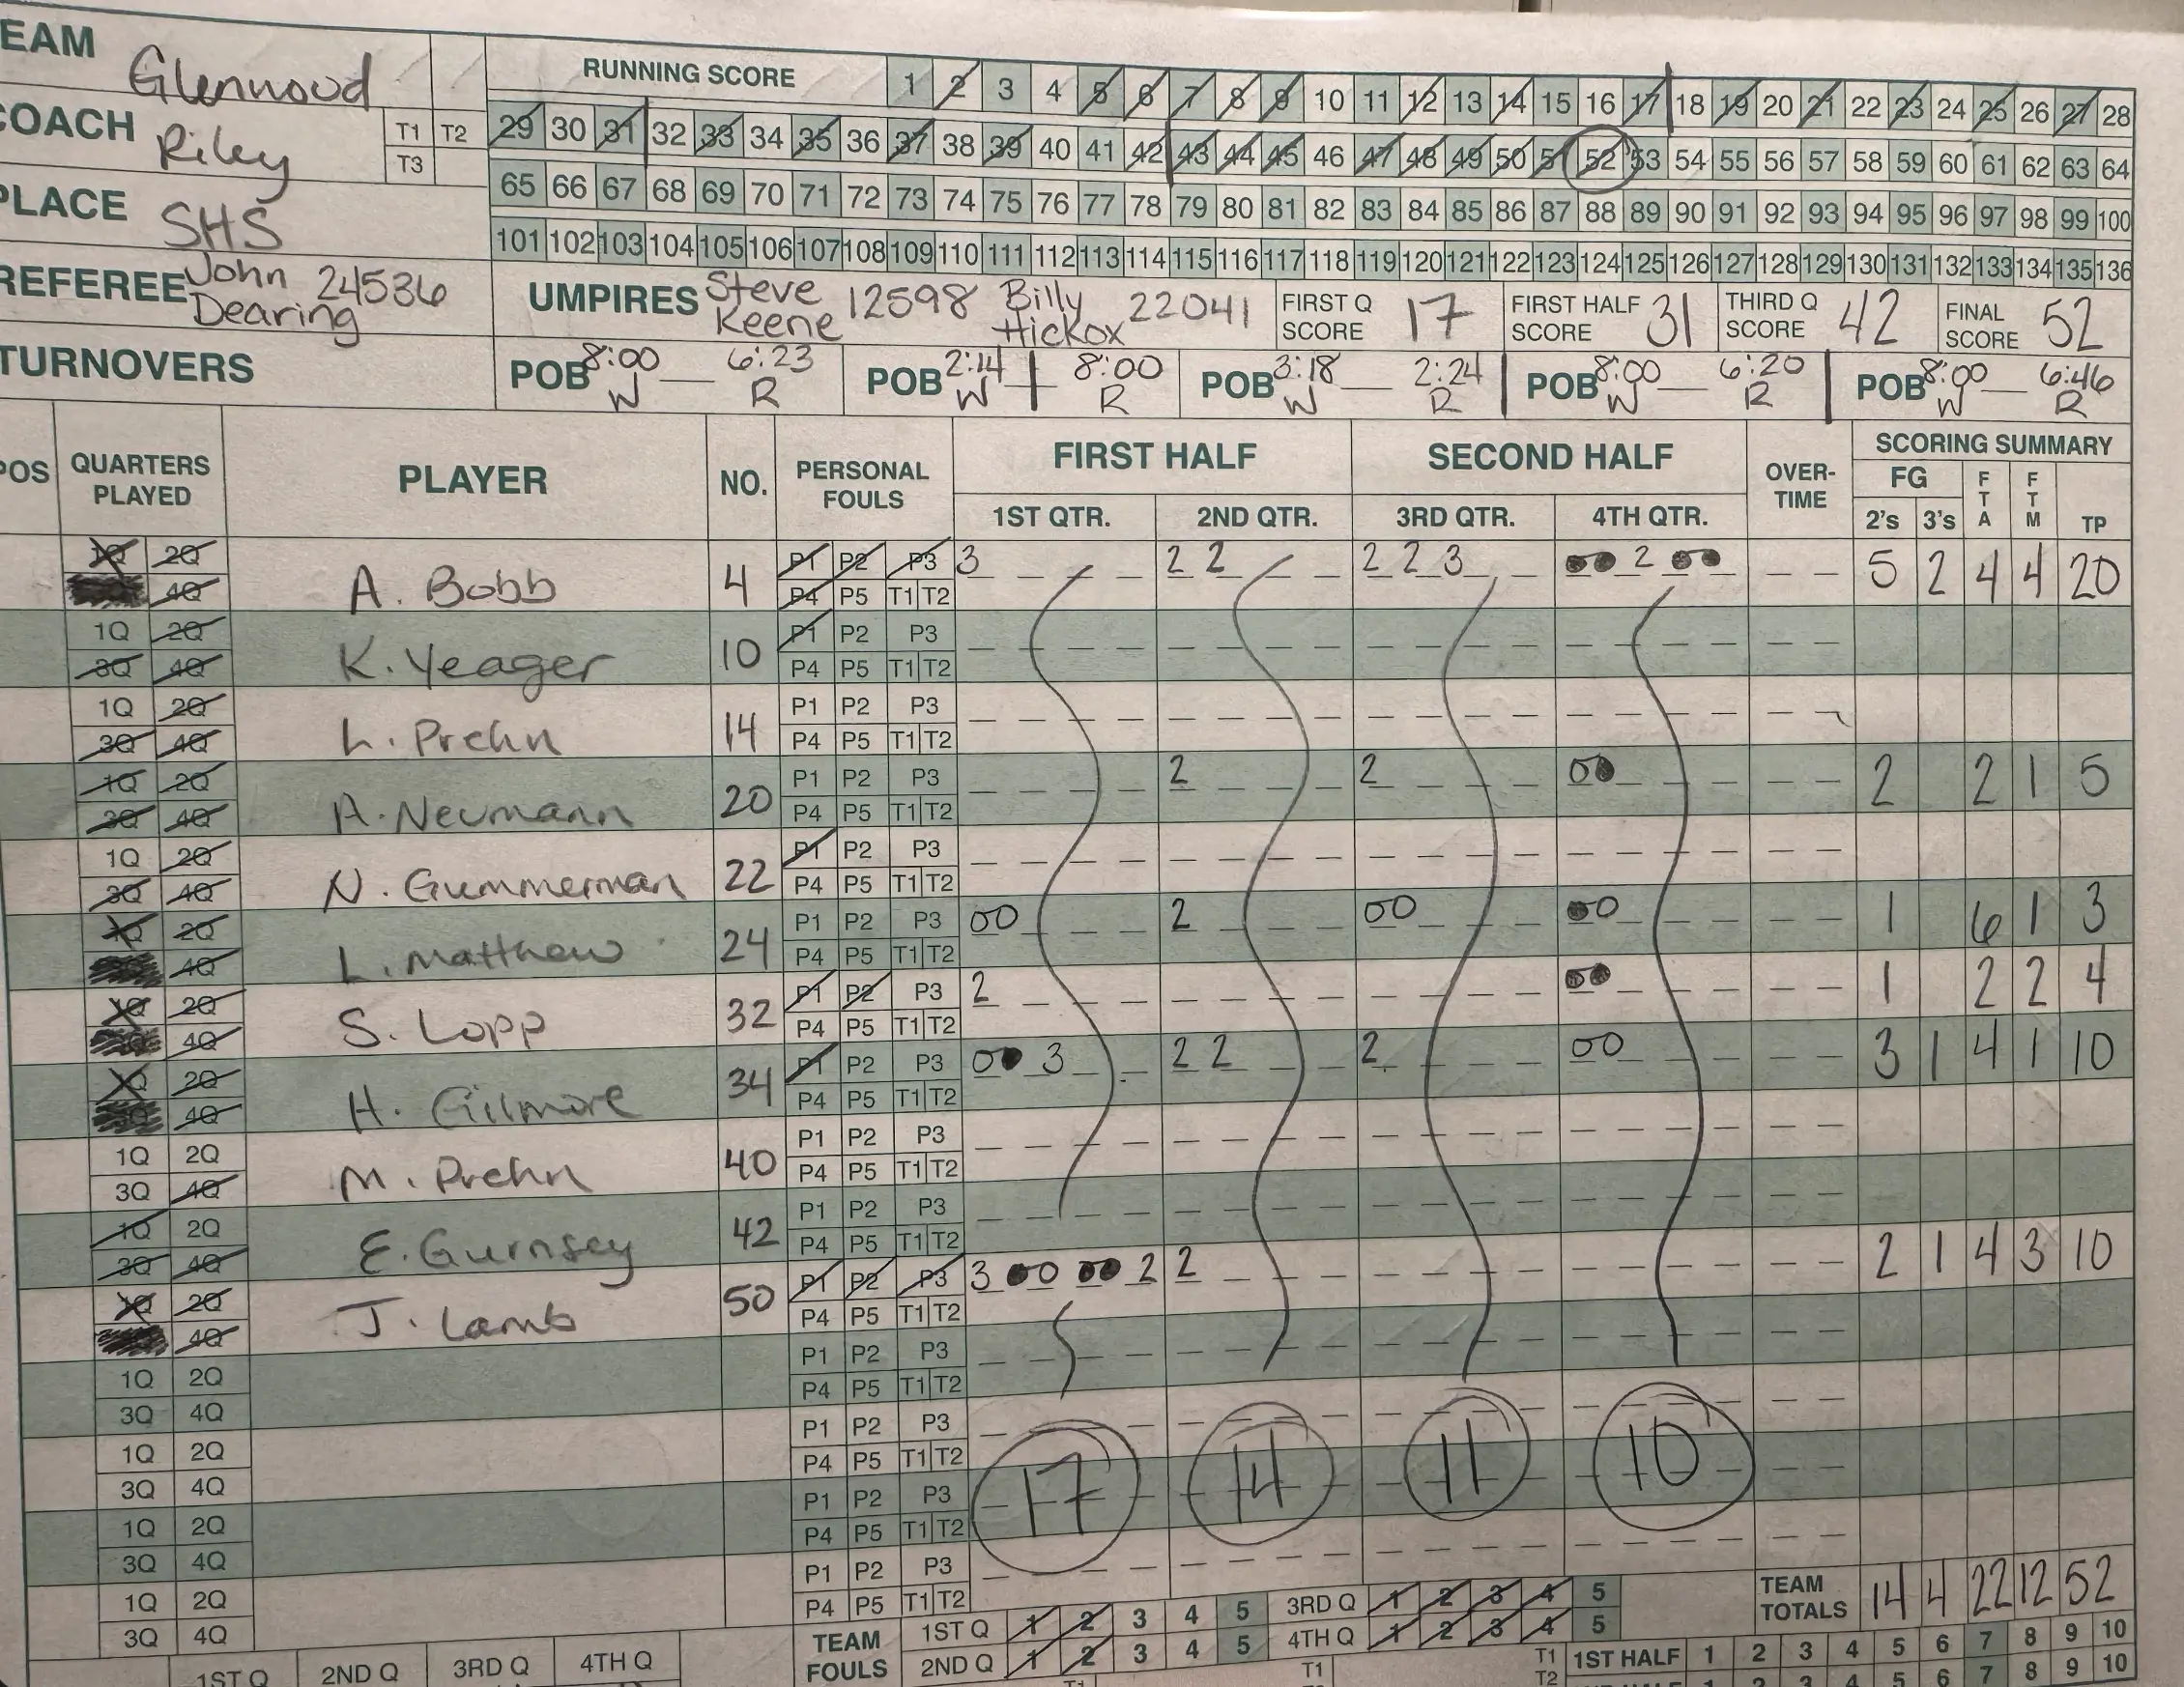 EAM Glenwood
RUNNING SCORE 1 2 3 4 5 6 7 8 9 10 11 12 13 14 15 16 17 18 19 20 21 22 23 24 25 26 27 28
COACH Riley T1 T2 T3
29 30 31 32 33 34 35 36 37 38 39 40 41 42 43 44 45 46 47 48 49 50 51 52 53 54 55 56 57 58 59 60 61 62 63 64
PLACE SHS
65 66 67 68 69 70 71 72 73 74 75 76 77 78 79 80 81 82 83 84 85 86 87 88 89 90 91 92 93 94 95 96 97 98 99 100
101 102 103 104 105 106 107 108 109 110 111 112 113 114 115 116 117 118 119 120 121 122 123 124 125 126 127 128 129 130 131 132 133 134 135 136
REFEREE John Dearing 24536 UMPIRES Steve Keene 12598 Billy Hickox 22041 FIRST Q SCORE 17 FIRST HALF SCORE 31 THIRD Q SCORE 42 FINAL SCORE 52
TURNOVERS POB 8:00 W 6:23 R POB 2:14 W 8:00 R POB 3:18 W 2:24 R POB 8:00 W 6:20 R POB 8:00 W 6:46 R
POS QUARTERS PLAYED PLAYER NO. PERSONAL FOULS FIRST HALF SECOND HALF OVER-TIME SCORING SUMMARY
1ST QTR. 2ND QTR. 3RD QTR. 4TH QTR. FG 2's 3's FTA FTM TP
1Q 2Q A. Bobb 4 P1 P2 P3 3 2 2 2 2 3 2 5 2 4 4 20
4Q P4 P5 T1 T2
1Q 2Q K. Yeager 10 P1 P2 P3
3Q 4Q P4 P5 T1 T2
1Q 2Q L. Prehn 14 P1 P2 P3
3Q 4Q P4 P5 T1 T2
1Q 2Q A. Neumann 20 P1 P2 P3 2 2 2 2 1 5
3Q 4Q P4 P5 T1 T2
1Q 2Q N. Gummerman 22 P1 P2 P3
3Q 4Q P4 P5 T1 T2
1Q 2Q L. Matthew 24 P1 P2 P3 00 2 00 1 6 1 3
4Q P4 P5 T1 T2
1Q 2Q S. Lopp 32 P1 P2 P3 2 1 2 2 4
4Q P4 P5 T1 T2
1Q 2Q H. Gilmore 34 P1 P2 P3 3 2 2 2 00 3 1 4 1 10
4Q P4 P5 T1 T2
1Q 2Q M. Prehn 40 P1 P2 P3
3Q 4Q P4 P5 T1 T2
1Q 2Q E. Gurnsey 42 P1 P2 P3
3Q 4Q P4 P5 T1 T2
1Q 2Q J. Lamb 50 P1 P2 P3 3 0 2 2 2 1 4 3 10
4Q P4 P5 T1 T2
1Q 2Q P1 P2 P3
3Q 4Q P4 P5 T1 T2
1Q 2Q P1 P2 P3
3Q 4Q P4 P5 T1 T2
1Q 2Q P1 P2 P3 17 14 11 10
3Q 4Q P4 P5 T1 T2
1Q 2Q P1 P2 P3
3Q 4Q P4 P5 T1 T2
TEAM TOTALS 14 4 22 12 52
TEAM FOULS 1ST Q 1 2 3 4 5 3RD Q 1 2 3 4 5
2ND Q 1 2 3 4 5 4TH Q 1 2 3 4 5
T1 1ST HALF 1 2 3 4 5 6 7 8 9 10
1ST Q 2ND Q 3RD Q 4TH Q T1 T1 T2 1 2 3 4 5 6 7 8 9 10